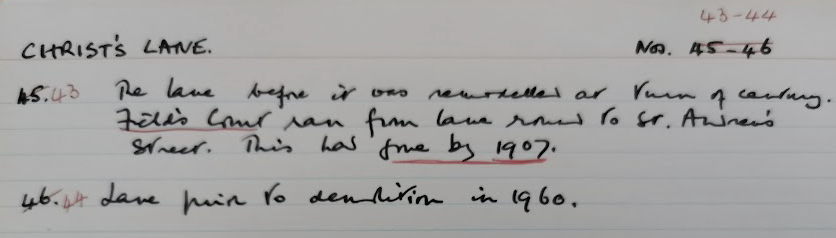 43-44
CHRIST'S LANE. Nos. 45-46
45. 43 The lane before it was remodelled at turn of century.
Field's Court ran from lane round to St. Andrew's
Street. This has gone by 1907.
46. 44 Lane prior to demolition in 1960.